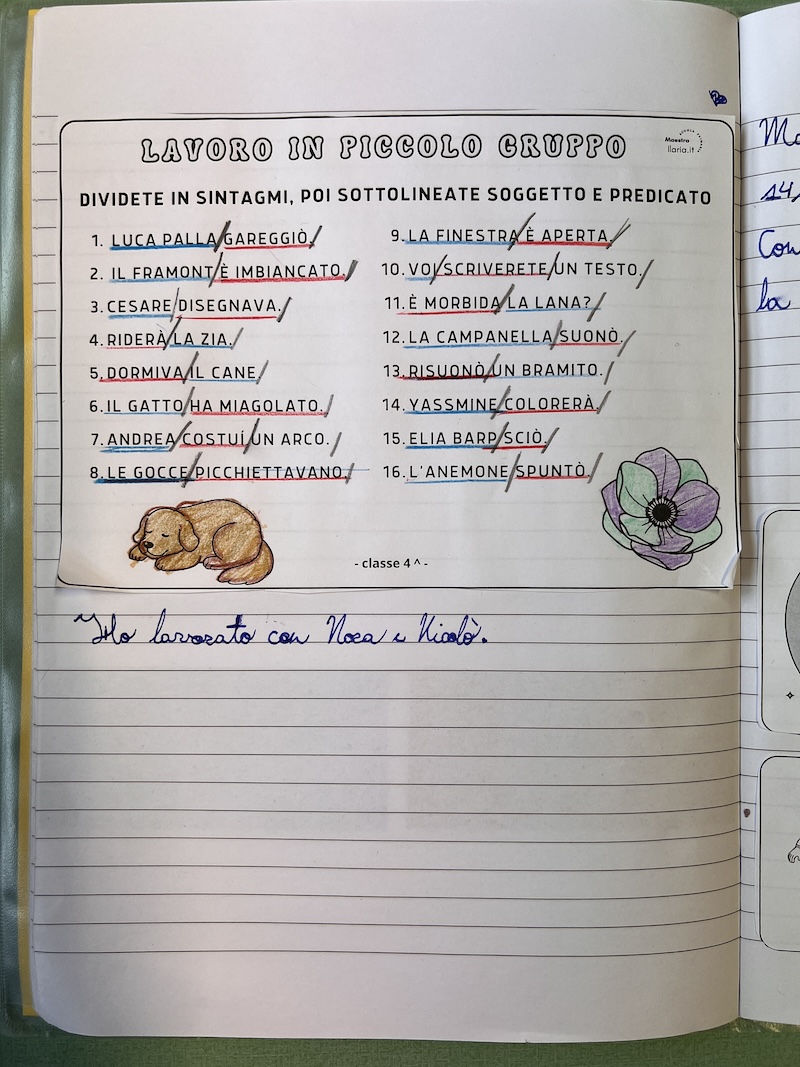 LAVORO IN PICCOLO GRUPPO
Maestra
Ilaria.it
DIVIDETE IN SINTAGMI, POI SOTTOLINEATE SOGGETTO E PREDICATO
1. LUCA PALLA/GAREGGIÒ./
2. IL FRAMONT/È IMBIANCATO./
3. CESARE/DISEGNAVA./
4. RIDERÀ/LA ZIA./
5. DORMIVA/IL CANE./
6. IL GATTO/HA MIAGOLATO./
7. ANDREA/COSTUÍ/UN ARCO./
8. LE GOCCE/PICCHIETTAVANO./
9. LA FINESTRA/È APERTA./
10. VOI/SCRIVERETE/UN TESTO./
11. È MORBIDA/LA LANA?/
12. LA CAMPANELLA/SUONÒ./
13. RISUONÒ/UN BRAMITO./
14. YASSMINE/COLORERÀ./
15. ELIA BARP/SCIÒ./
16. L'ANEMONE/SPUNTÒ./
- classe 4^ -
Ho lavorato con Noea e Nicolò.
14,
Con
la